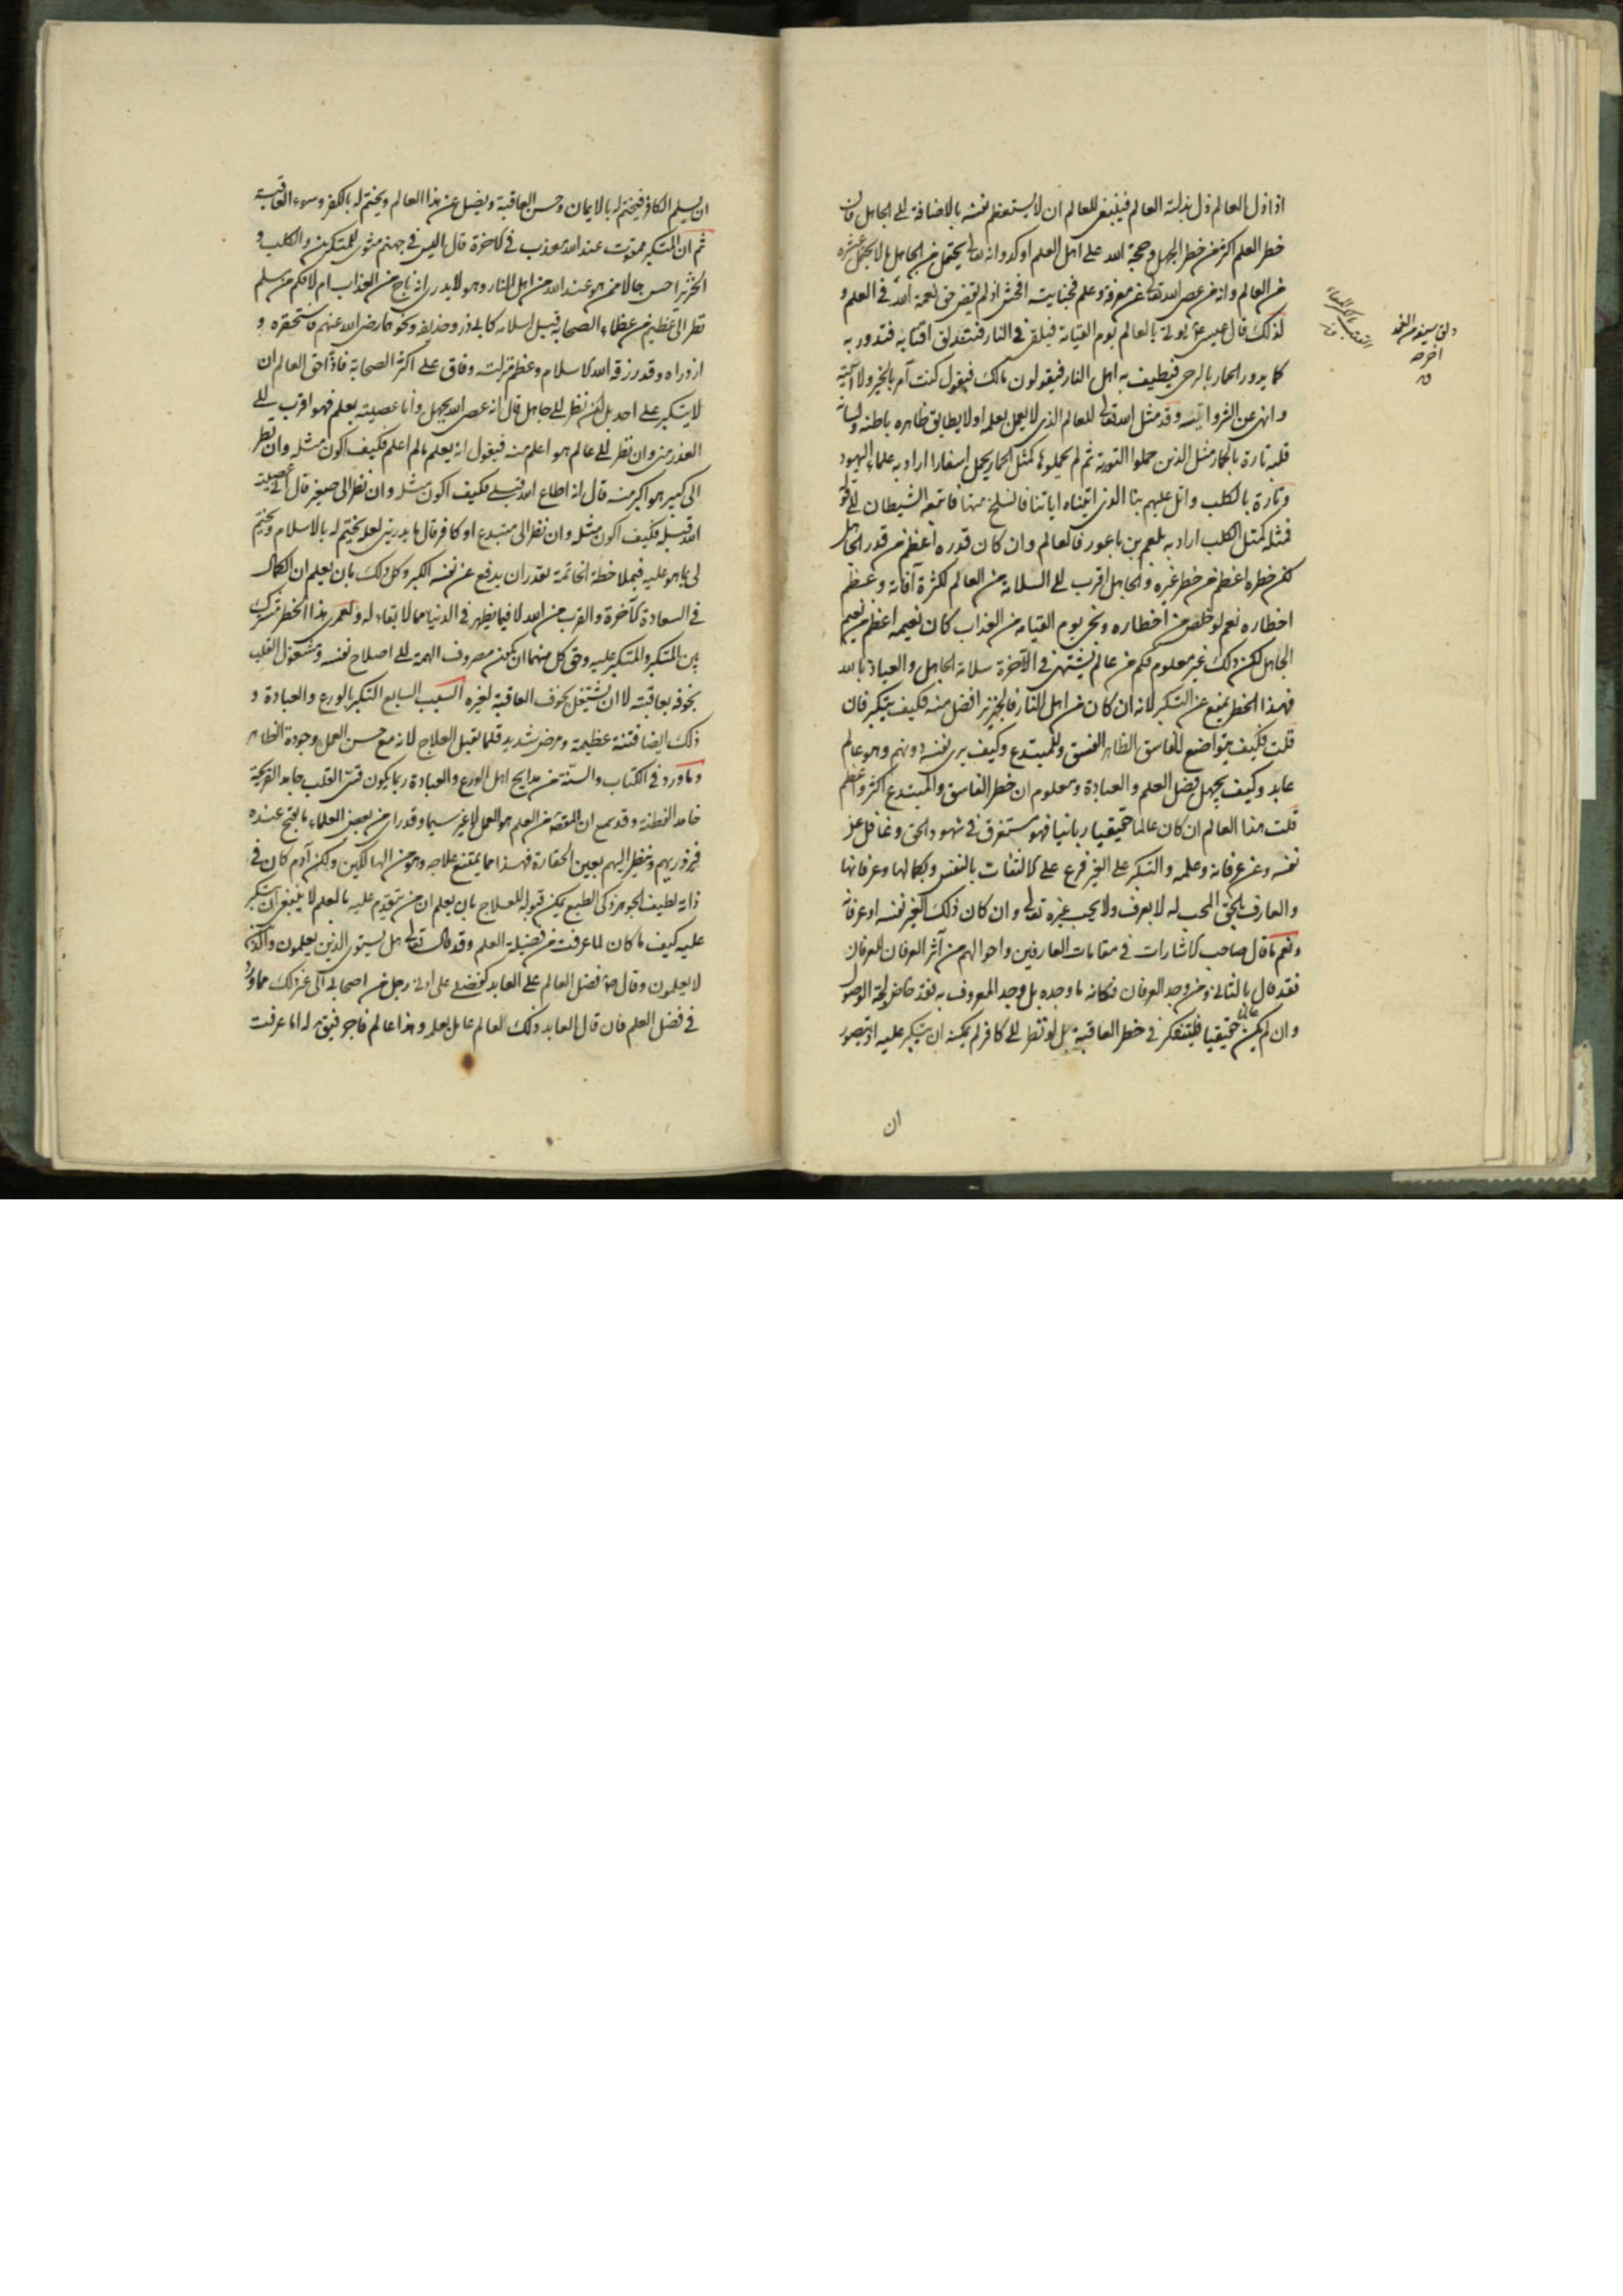 اذا زل العالم زل بزلته العالم فينبغى للعالم ان لا يستعظم نفسه بالاضافة الى الجاهل فان
خطر العلم اكثر من خطر الجهل وحجة الله على اهل العلم اوكد وانه تعالى يحتمل من الجاهل ما لا يحتمل عشره
من العالم وانه من عصى الله تعالى عن معرفة وعلم فجنايته افحش اذ لم يقض حق نعمة الله فى العلم و
لذلك قال يؤتى بالعالم يوم القيامة فيلقى فى النار فتندلق اقتابه فتدور به
كما يدور الحمار بالرحى فيطيف به اهل النار فيقولون مالك فيقول كنت آمر بالخير ولا آتيه
وانهى عن الشر وآتيه وقد مثل الله تعالى للعالم الذى لا يعمل بعلمه اولا يطابق ظاهره باطنه ولسانه
قلبه تارة بالحمار مثل الذين حملوا التورية ثم لم يحملوها كمثل الحمار يحمل اسفارا اراد به علماء اليهود
وتارة بالكلب واتل عليهم نبأ الذى اتيناه اياتنا فانسلخ منها فاتبعه الشيطان الى قوله
فمثله كمثل الكلب اراد به بلعم بن باعور فالعالم وان كان قدره اعظم من قدر الجاهل
لكن خطره اعظم من خطر غيره والجاهل اقرب الى السلامة من العالم لكثرة آفاته وعظم
اخطاره نعم لو خلص من اخطاره ونجى يوم القيامه من العذاب كان نعيمه اعظم من نعيم
الجاهل لكن ذلك غير معلوم فكم من عالم يشتهى فى الآخرة سلامة الجاهل والعياذ بالله
فهذا الخطر يمنع عن التكبر لانه ان كان من اهل النار فالخنزير افضل منه فكيف يتكبر فان
قلت فكيف يتواضع للفاسق الظاهر الفسق وللمبتدع وكيف يرى نفسه دونهم وهو عالم
عابد وكيف يجهل فضل العلم والعبادة ومعلوم ان خطر الفاسق والمبتدع اكثر واعظم
قلت هذا العالم ان كان عالما حقيقيا ربانيا فهو مستغرق فى شهود الحق وغافل عن
نفسه وعن عرفانه وعلمه والتكبر على الغير فرع على الالتفات بالنفس وبكمالها وعرفانها
والعارف بالحق المحب له لا يعرف ولا يحب غيره تعالى وان كان ذلك الغير نفسه او عرفانه
ونعم ما قال صاحب الاشارات فى مقامات العارفين واحوالهم من آثر العرفان للعرفان
فقد قال بالثانى ومن وجد العرفان فكانه ما وجده بل وجد المعروف به فقد خاض لجة الوصول
وان لم يكن عالما حقيقيا فليتفكر فى خطر العاقبة بل لو نظر الى كافر لم يمكنه ان يتكبر عليه اذ يتصور
ان
ان يسلم الكافر فيختم له بالايمان وحسن العاقبة ويضل عن هذا العالم ويختم له بالكفر وسوء العاقبة
ثم ان المتكبر ممقوت عند الله معذب فى الاخرة قال اليس فى جهنم مثوى للمتكبرين والكلب و
الخنزير احسن حالا ممن هو عند الله من اهل النار وهو لا يدرى انه ناج من العذاب ام لا فكم من مسلم
نظر الى عظيم من عظماء الصحابة قبل اسلامه كابى ذر وحذيفة ونحوهما رضى الله عنهم فاستحقره و
ازدراه وقد رزقه الله الاسلام وعظم منزلته وفاق على اكثر الصحابة فاذا حق العالم ان
لا يتكبر على احد بل ان نظر الى جاهل قال انه عصى الله بجهل وانا عصيته بعلم فهو اقرب الى
العذر منى وان نظر الى عالم هو اعلم منه فيقول انه يعلم ما لم اعلم فكيف اكون مثله وان نظر
الى كبير هو اكبر منه قال انه اطاع الله قبلى فكيف اكون مثله وان نظر الى صغير قال انى عصيت
الله قبله فكيف اكون مثله وان نظر الى مبتدع او كافر قال ما يدرينى لعله يختم له بالاسلام ويختم
لى بما هو عليه فبملاحظة الخاتمة يقدر ان يدفع عن نفسه الكبر وكل ذلك بان يعلم ان الكمال
فى السعادة الآخرة والقرب من الله لا فيما يظهر فى الدنيا مما لا بقاء له ولعمرى هذا الخطر مشترك
بين المتكبر والمتكبر عليه وحق كل منهما ان يكون مصروف الهمة الى اصلاح نفسه ومشغول القلب
بخوفه بعاقبته لا ان يشتغل بخوف العاقبة لغيره السبب السابع التكبر بالورع والعبادة و
ذلك ايضا فتنة عظيمة ومرض شديد قلما يقبل العلاج لانه مع حسن العمل وجودة الظاهر
وما ورد فى الكتاب والسنة من مدايح اهل الورع والعبادة ربما يكون قسى القلب جامد القريحة
خامد الفطنة وقد سمع ان المقصد من العلم هو العمل لا غير سيما وقد راى من بعض العلماء ما يقبح عنده
فيزدريهم وينظر اليهم بعين الحقارة فهذا مما يمتنع علاجه وهو من الهالكين ولكن آدم كان فى
ذاته لطيف الجوهر ذكى الطبع يمكن قبوله للعلاج بان يعلم ان من يتقدم عليه بالعلم لا ينبغى ان يتكبر
عليه كيف ما كان لما عرفت من فضيلة العلم وقد قال تعالى هل يستوى الذين يعلمون والذين
لا يعلمون وقال فضل العالم على العابد كفضلى على ادنى رجل من اصحابى الى غير ذلك مما ورد
فى فضل العلم فان قال العابد ذلك العالم عامل بعلمه وهذا عالم فاجر فيق له اما عرفت